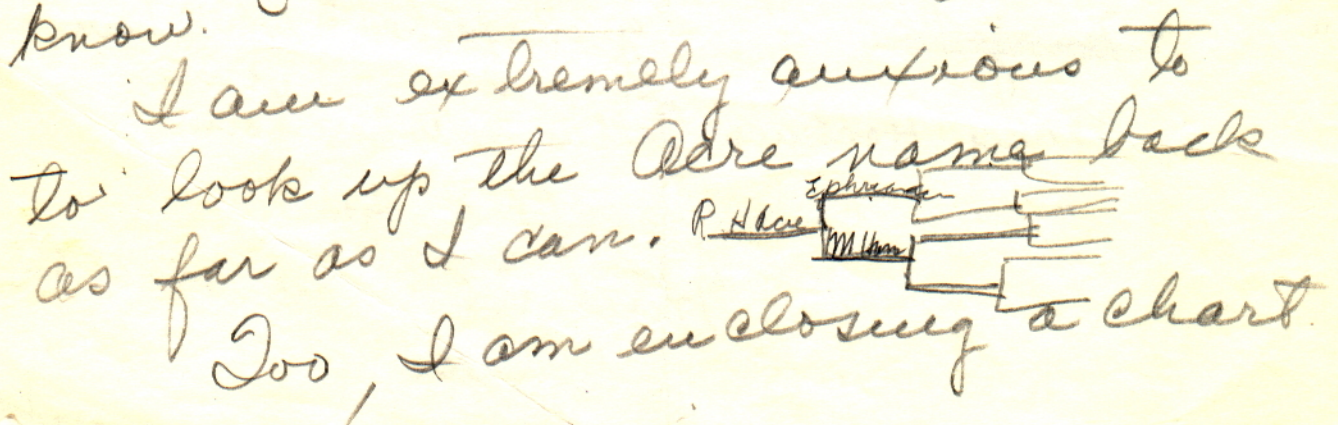 know.
I am extremely anxious to
to look up the Acre name back
as far as I can. R H Acre Ephriam
Too, I am enclosing a chart